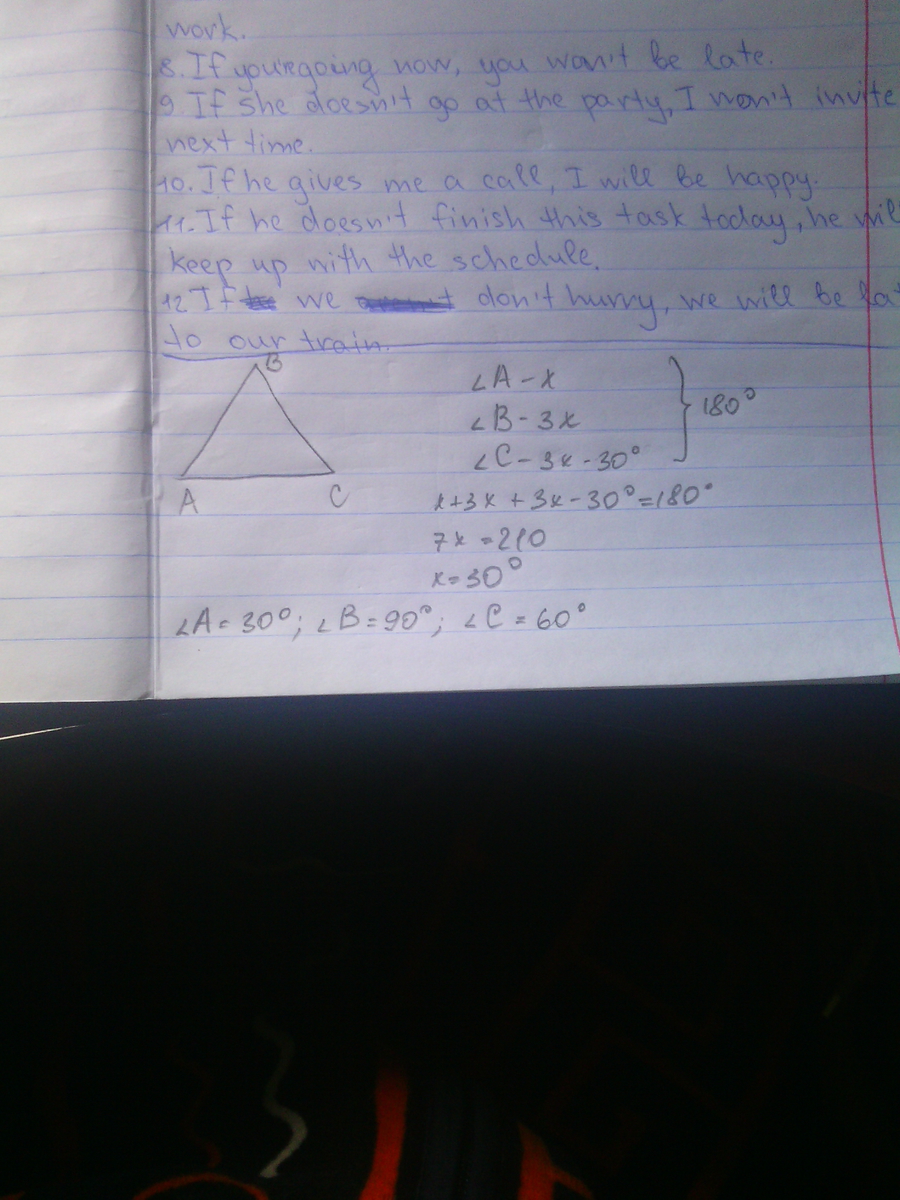 work.
8. If you'regoing now, you wan't be late.
9. If she doesn't go at the party, I won't invite
next time.
10. If he gives me a call, I will be happy.
11. If he doesn't finish this task today, he wil
keep up with the schedule.
12 If we don't hurry, we will be la
to our train.
B
A
C
∠A - x
∠B - 3x
∠C - 3x - 30°
180°
x + 3x + 3x - 30° = 180°
7x = 210
x = 30°
∠A = 30°; ∠B = 90°; ∠C = 60°